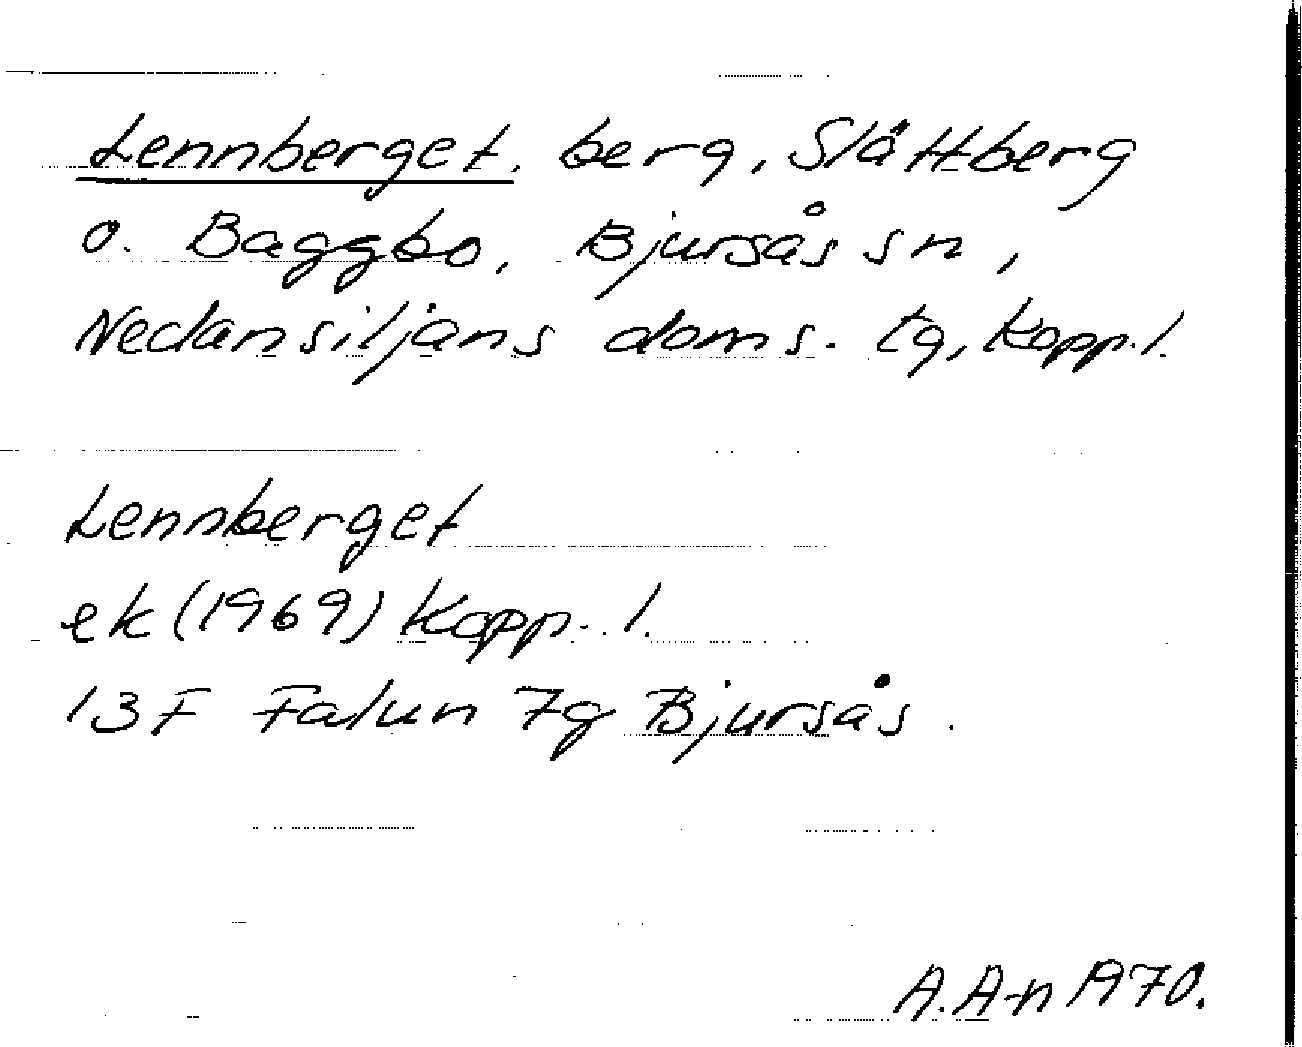 Lennberget. berg, Slåttberg
o. Baggbo, Bjursås sn,
Nedansiljans doms. tg, Kopp.l.
Lennberget
ek (1969) Kopp. l.
13F Falun 7g Bjursås.
A.A-n 1970.